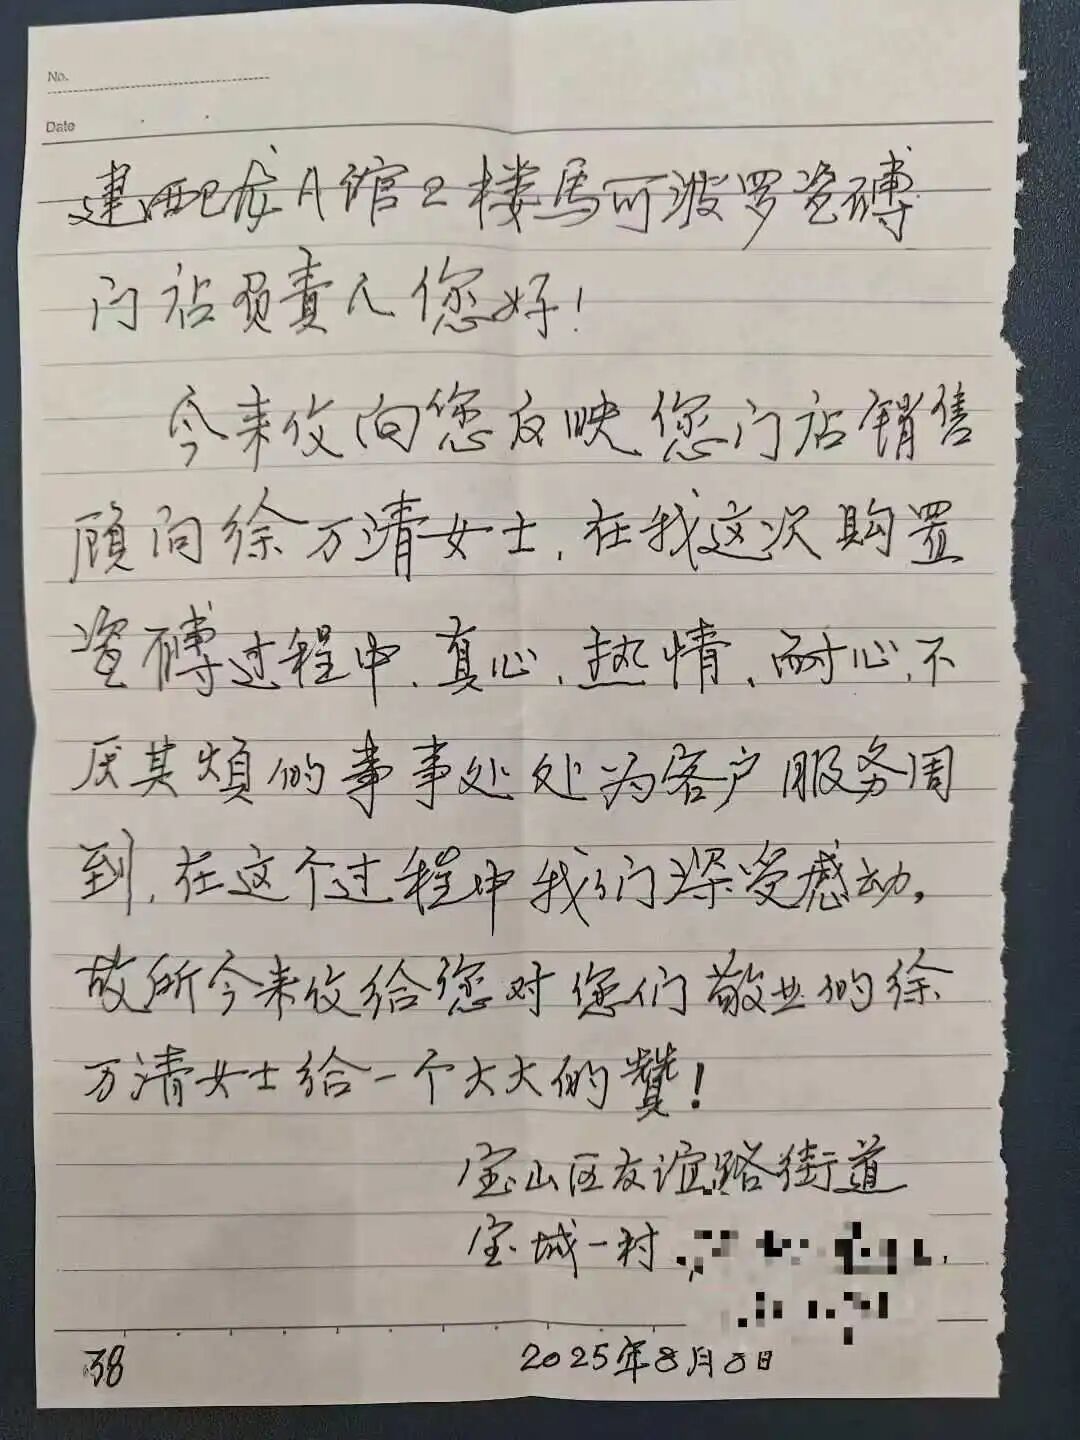 No.
Date
建配龙A馆2楼馬可波罗瓷磚
门店负责人您好!
今来仅向您反映您门店销售
顾问徐万清女士,在我这次购置
瓷磚过程中、真心、热情、耐心、不
厌其烦的事事处处为客户服务周
到,在这个过程中我们深受感动。
故所今来仅给您对您们敬业的徐
万清女士给一个大大的赞!
宝山区友谊路街道
宝城一村
38
2025年8月8日